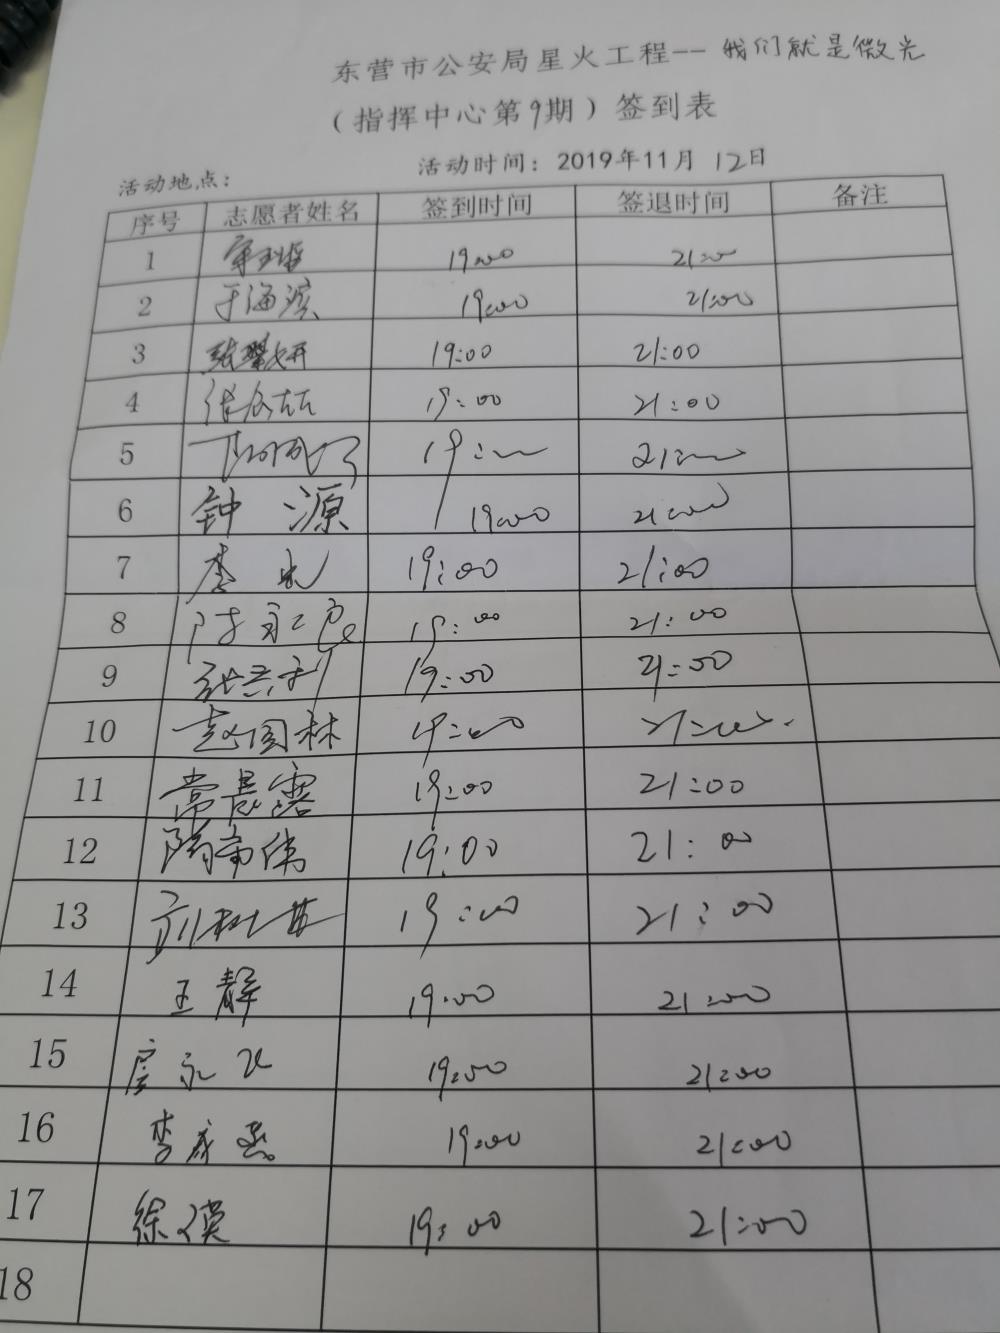 东营市公安局星火工程--我们就是微光
（指挥中心第9期）签到表
活动地点： 活动时间：2019年11月12日
序号 志愿者姓名 签到时间 签退时间 备注
1 19:00 21:00
2 于海滨 19:00 21:00
3 19:00 21:00
4 19:00 21:00
5 19:00 21:00
6 钟源 19:00 21:00
7 李 19:00 21:00
8 19:00 21:00
9 19:00 21:00
10 赵国林 19:00 21:00
11 常晨露 19:00 21:00
12 隋希伟 19:00 21:00
13 19:00 21:00
14 王静 19:00 21:00
15 19:00 21:00
16 李彦燕 19:00 21:00
17 徐文英 19:00 21:00
18